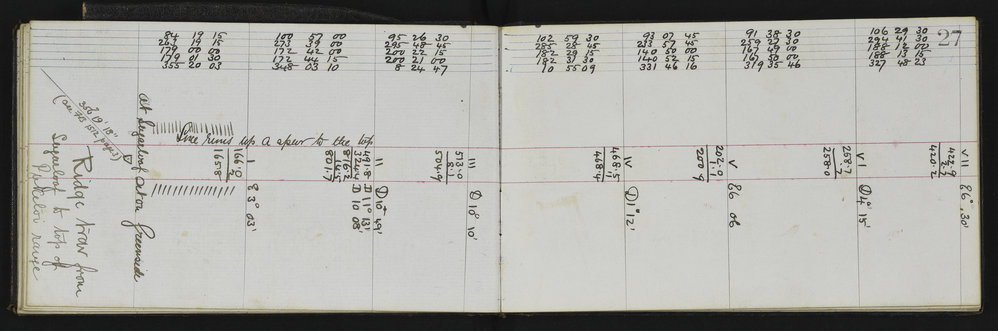 84 19 15
263 19 15
179 00 00
179 01 30
355 20 03
100 57 00
273 39 00
172 42 00
172 44 15
348 03 10
95 26 30
295 48 45
200 22 15
200 21 00
8 24 47
102 59 30
285 28 45
182 29 15
182 31 30
10 55 09
93 07 45
233 57 45
140 50 00
140 52 15
331 46 16
91 38 30
259 27 30
167 49 00
167 50 00
319 35 46
106 29 30
294 41 30
188 12 00
188 13 15
327 48 23
27
Ridge trav from
Sugarloaf to top of
range
350° 19' 18"
at Sugarloaf
Greenside
Line runs up a spur to the top
I
166.0
165.8
83° 03'
491.8
324.4
816.2
801.7
D 11° 13'
D 10 08'
II
D 10° 49'
III
513.0
504.9
D 10° 10'
IV
468.5
468.4
D 1° 12'
V
202.0
1.1
200.9
86 06
VI
258.7
.7
258.0
D 4° 15'
VIII
422.9
420.2
86° 30'